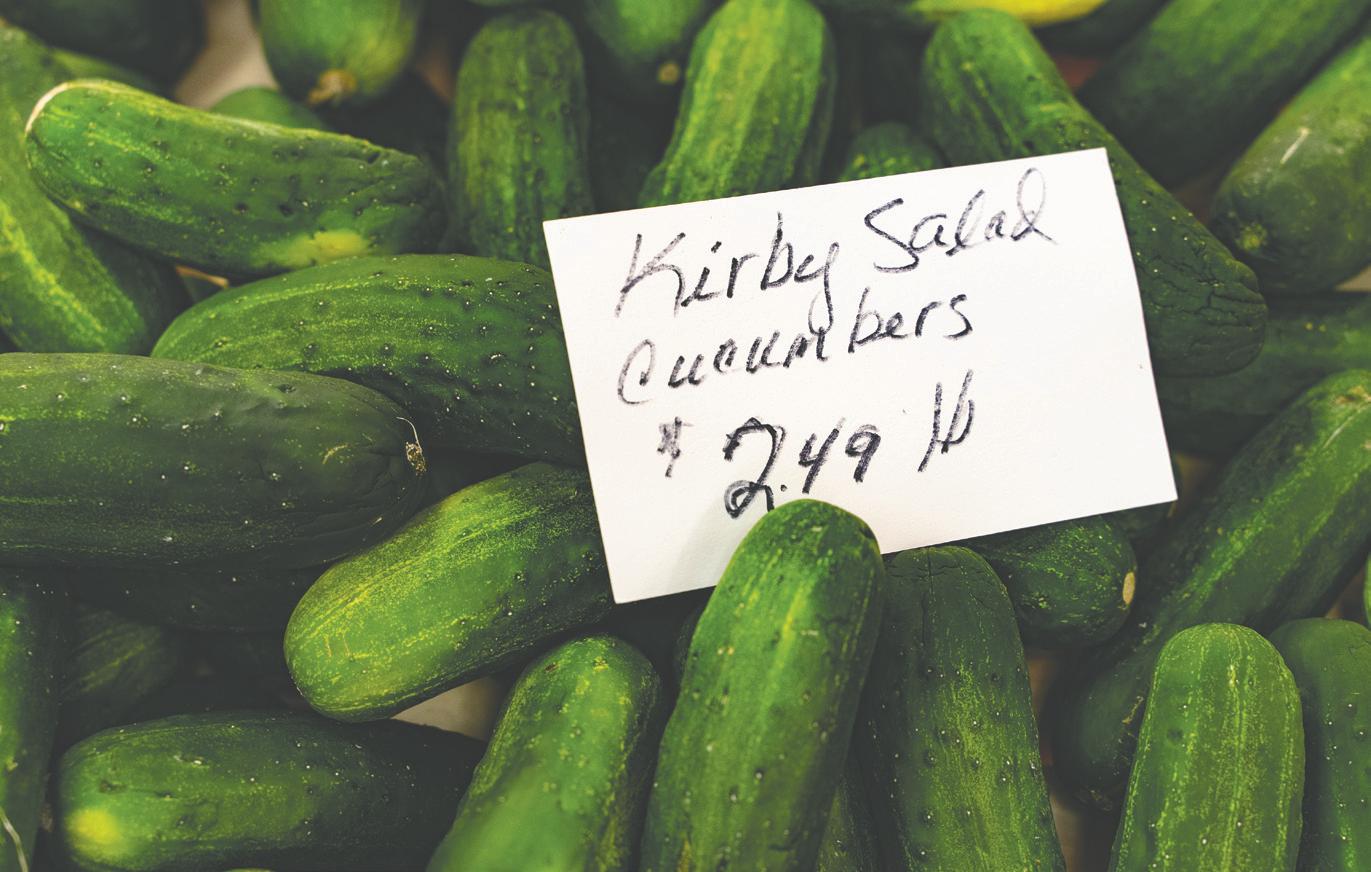 Kirby Salad
Cucumbers
$ 2.49 lb